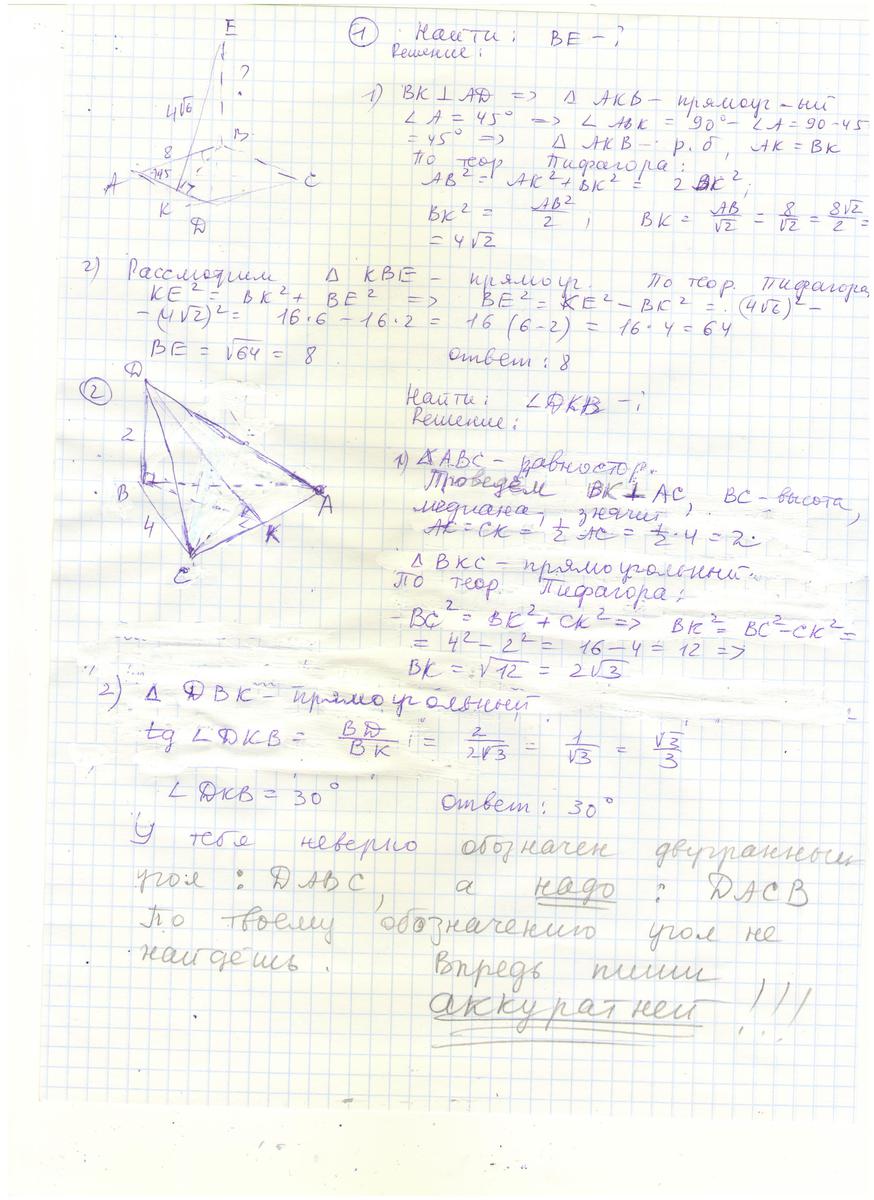 E
① Найти: BE - ?
Решение:
?
4√6
1) BK ⊥ AD => Δ AKB - прямоуг-ный
∠A = 45° => ∠ABK = 90° - ∠A = 90-45
= 45° => Δ AKB - р.б, AK = BK
По теор Пифагора:
AB² = AK² + BK² = 2BK²;
BK² = AB²/2 ; BK = AB/√2 = 8/√2 = 8√2/2 =
= 4√2
B
8
A
45
C
K
D
2) Рассмотрим Δ KBE - прямоуг. По теор. Пифагора
KE² = BK² + BE² => BE² = KE² - BK² = (4√6)² -
- (4√2)² = 16·6 - 16·2 = 16(6-2) = 16·4 = 64
BE = √64 = 8 Ответ: 8
② Найти: ∠DKB - ?
Решение:
D
2
B
A
4
K
C
1) ΔABC - равностор.
Проведём BK ⊥ AC, BC - высота,
медиана, значит
AK = CK = 1/2 AC = 1/2 · 4 = 2.
Δ BKC - прямоугольный.
По теор. Пифагора:
BC² = BK² + CK² => BK² = BC² - CK² =
= 4² - 2² = 16 - 4 = 12 =>
BK = √12 = 2√3
2) Δ DBK - прямоугольный
tg ∠DKB = BD/BK = 2/2√3 = 1/√3 = √3/3
∠DKB = 30° Ответ: 30°
У тебя неверно обозначен двугранный
угол: DABC, а надо: DACB
По твоему обозначению угол не
найдёшь. Впредь пиши
аккуратней!!!